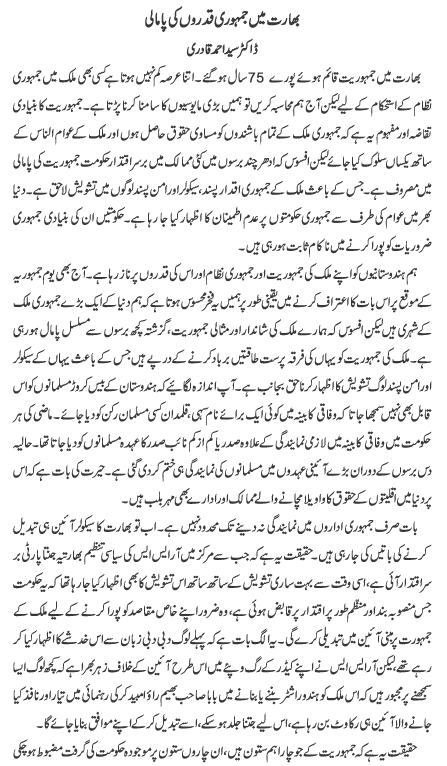 بھارت میں جمہوری قدروں کی پامالی
ڈاکٹر سید احمد قادری
بھارت میں جمہوریت قائم ہوئے پورے 75 سال ہو گئے۔ اتنا عرصہ کم نہیں ہوتا ہے کسی بھی ملک میں جمہوری
نظام کے استحکام کے لیے لیکن آج ہم محاسبہ کریں تو ہمیں بڑی مایوسیوں کا سامنا کرنا پڑتا ہے۔ جمہوریت کا بنیادی
تقاضہ اور مفہوم یہ ہے کہ جمہوری ملک کے تمام باشندوں کو مساوی حقوق حاصل ہوں اور ملک کے عوام الناس کے
ساتھ یکساں سلوک کیا جائے لیکن افسوس کہ ادھر چند برسوں میں کئی ممالک میں برسر اقتدار حکومت جمہوریت کی پامالی
میں مصروف ہے۔ جس کے باعث ملک کے جمہوری اقدار پسند، سیکولر اور امن پسند لوگوں میں تشویش لاحق ہے۔ دنیا
بھر میں عوام کی طرف سے جمہوری حکومتوں پر عدم اطمینان کا اظہار کیا جا رہا ہے۔ حکومتیں ان کی بنیادی جمہوری
ضروریات کو پورا کرنے میں ناکام ثابت ہو رہی ہیں۔
ہم ہندوستانیوں کو اپنے ملک کی جمہوریت اور جمہوری نظام اور اس کی قدروں پر ناز رہا ہے۔ آج بھی یوم جمہوریہ
کے موقع پر اس بات کا اعتراف کرنے میں یقینی طور پر ہمیں یہ فخر محسوس ہوتا ہے کہ ہم دنیا کے ایک بڑے جمہوری ملک
کے شہری ہیں لیکن افسوس کہ ہمارے ملک کی شاندار اور مثالی جمہوریت، گزشتہ کچھ برسوں سے مسلسل پامال ہو رہی
ہے۔ ملک کی جمہوریت کو یہاں کی فرقہ پرست طاقتیں برباد کرنے کے در پے ہیں جس کے باعث یہاں کے سیکولر
اور امن پسند لوگ تشویش کا اظہار کرنا حق بجانب ہے۔ آپ اندازہ لگائیے کہ ہندوستان کے بیس کروڑ مسلمانوں کو اس
قابل بھی نہیں سمجھا جاتا کہ وفاقی کابینہ میں کوئی ایک برائے نام سہی، قلمدان کسی مسلمان رکن کو دیا جائے۔ ماضی کی ہر
حکومت میں وفاقی کابینہ میں لازمی نمائندگی کے علاوہ صدر یا کم از کم نائب صدر کا عہدہ مسلمانوں کو دیا جاتا تھا۔ حالیہ
دس برسوں کے دوران بڑے آئینی عہدوں میں مسلمانوں کی نمائندگی ہی ختم کر دی گئی ہے۔ حیرت کی بات ہے کہ اس
پر دنیا میں اقلیتوں کے حقوق کا واویلا مچانے والے ممالک اور ادارے بھی مہر بلب ہیں۔
بات صرف جمہوری اداروں میں نمائندگی نہ دینے تک محدود نہیں ہے۔ اب تو بھارت کا سیکولر آئین ہی تبدیل
کرنے کی باتیں کی جا رہی ہیں۔ حقیقت یہ ہے کہ جب سے مرکز میں آر ایس ایس کی سیاسی تنظیم بھارتیہ جنتا پارٹی بر
سر اقتدار آئی ہے، اسی وقت سے بہت ساری تشویش کے ساتھ ساتھ اس تشویش کا بھی اظہار کیا جا رہا تھا کہ یہ حکومت
جس منصوبہ بند اور منظم طور پر اقتدار پر قابض ہوئی ہے، وہ ضرور اپنے خاص مقاصد کو پورا کرنے کے لیے ملک کے
جمہورت پر مبنی آئین میں تبدیلی کرے گی۔ یہ الگ بات ہے کہ پہلے لوگ دبی دبی زبان سے اس خدشے کا اظہار کیا کر
رہے تھے، لیکن آر ایس ایس نے اپنے کیڈر کے رگ و پئے میں اس طرح آئین کے خلاف زہر بھرا ہے کہ کچھ لوگ ایسا
سمجھنے پر مجبور ہیں کہ اس ملک کو ہندو راشٹر بننے یا بنانے میں بابا صاحب بھیم راؤ امبیدکر کی رہنمائی میں تیار اور نافذ کیا
جانے والا آئین ہی رکاوٹ بن رہا ہے، اس لیے جتنا جلد ہو سکے، اسے تبدیل کر کے اپنے موافق بنایا جائے گا۔
حقیقت یہ ہے کہ جمہوریت کے جو چار اہم ستون ہیں، ان چاروں ستون پر موجودہ حکومت کی گرفت مضبوط ہو چکی